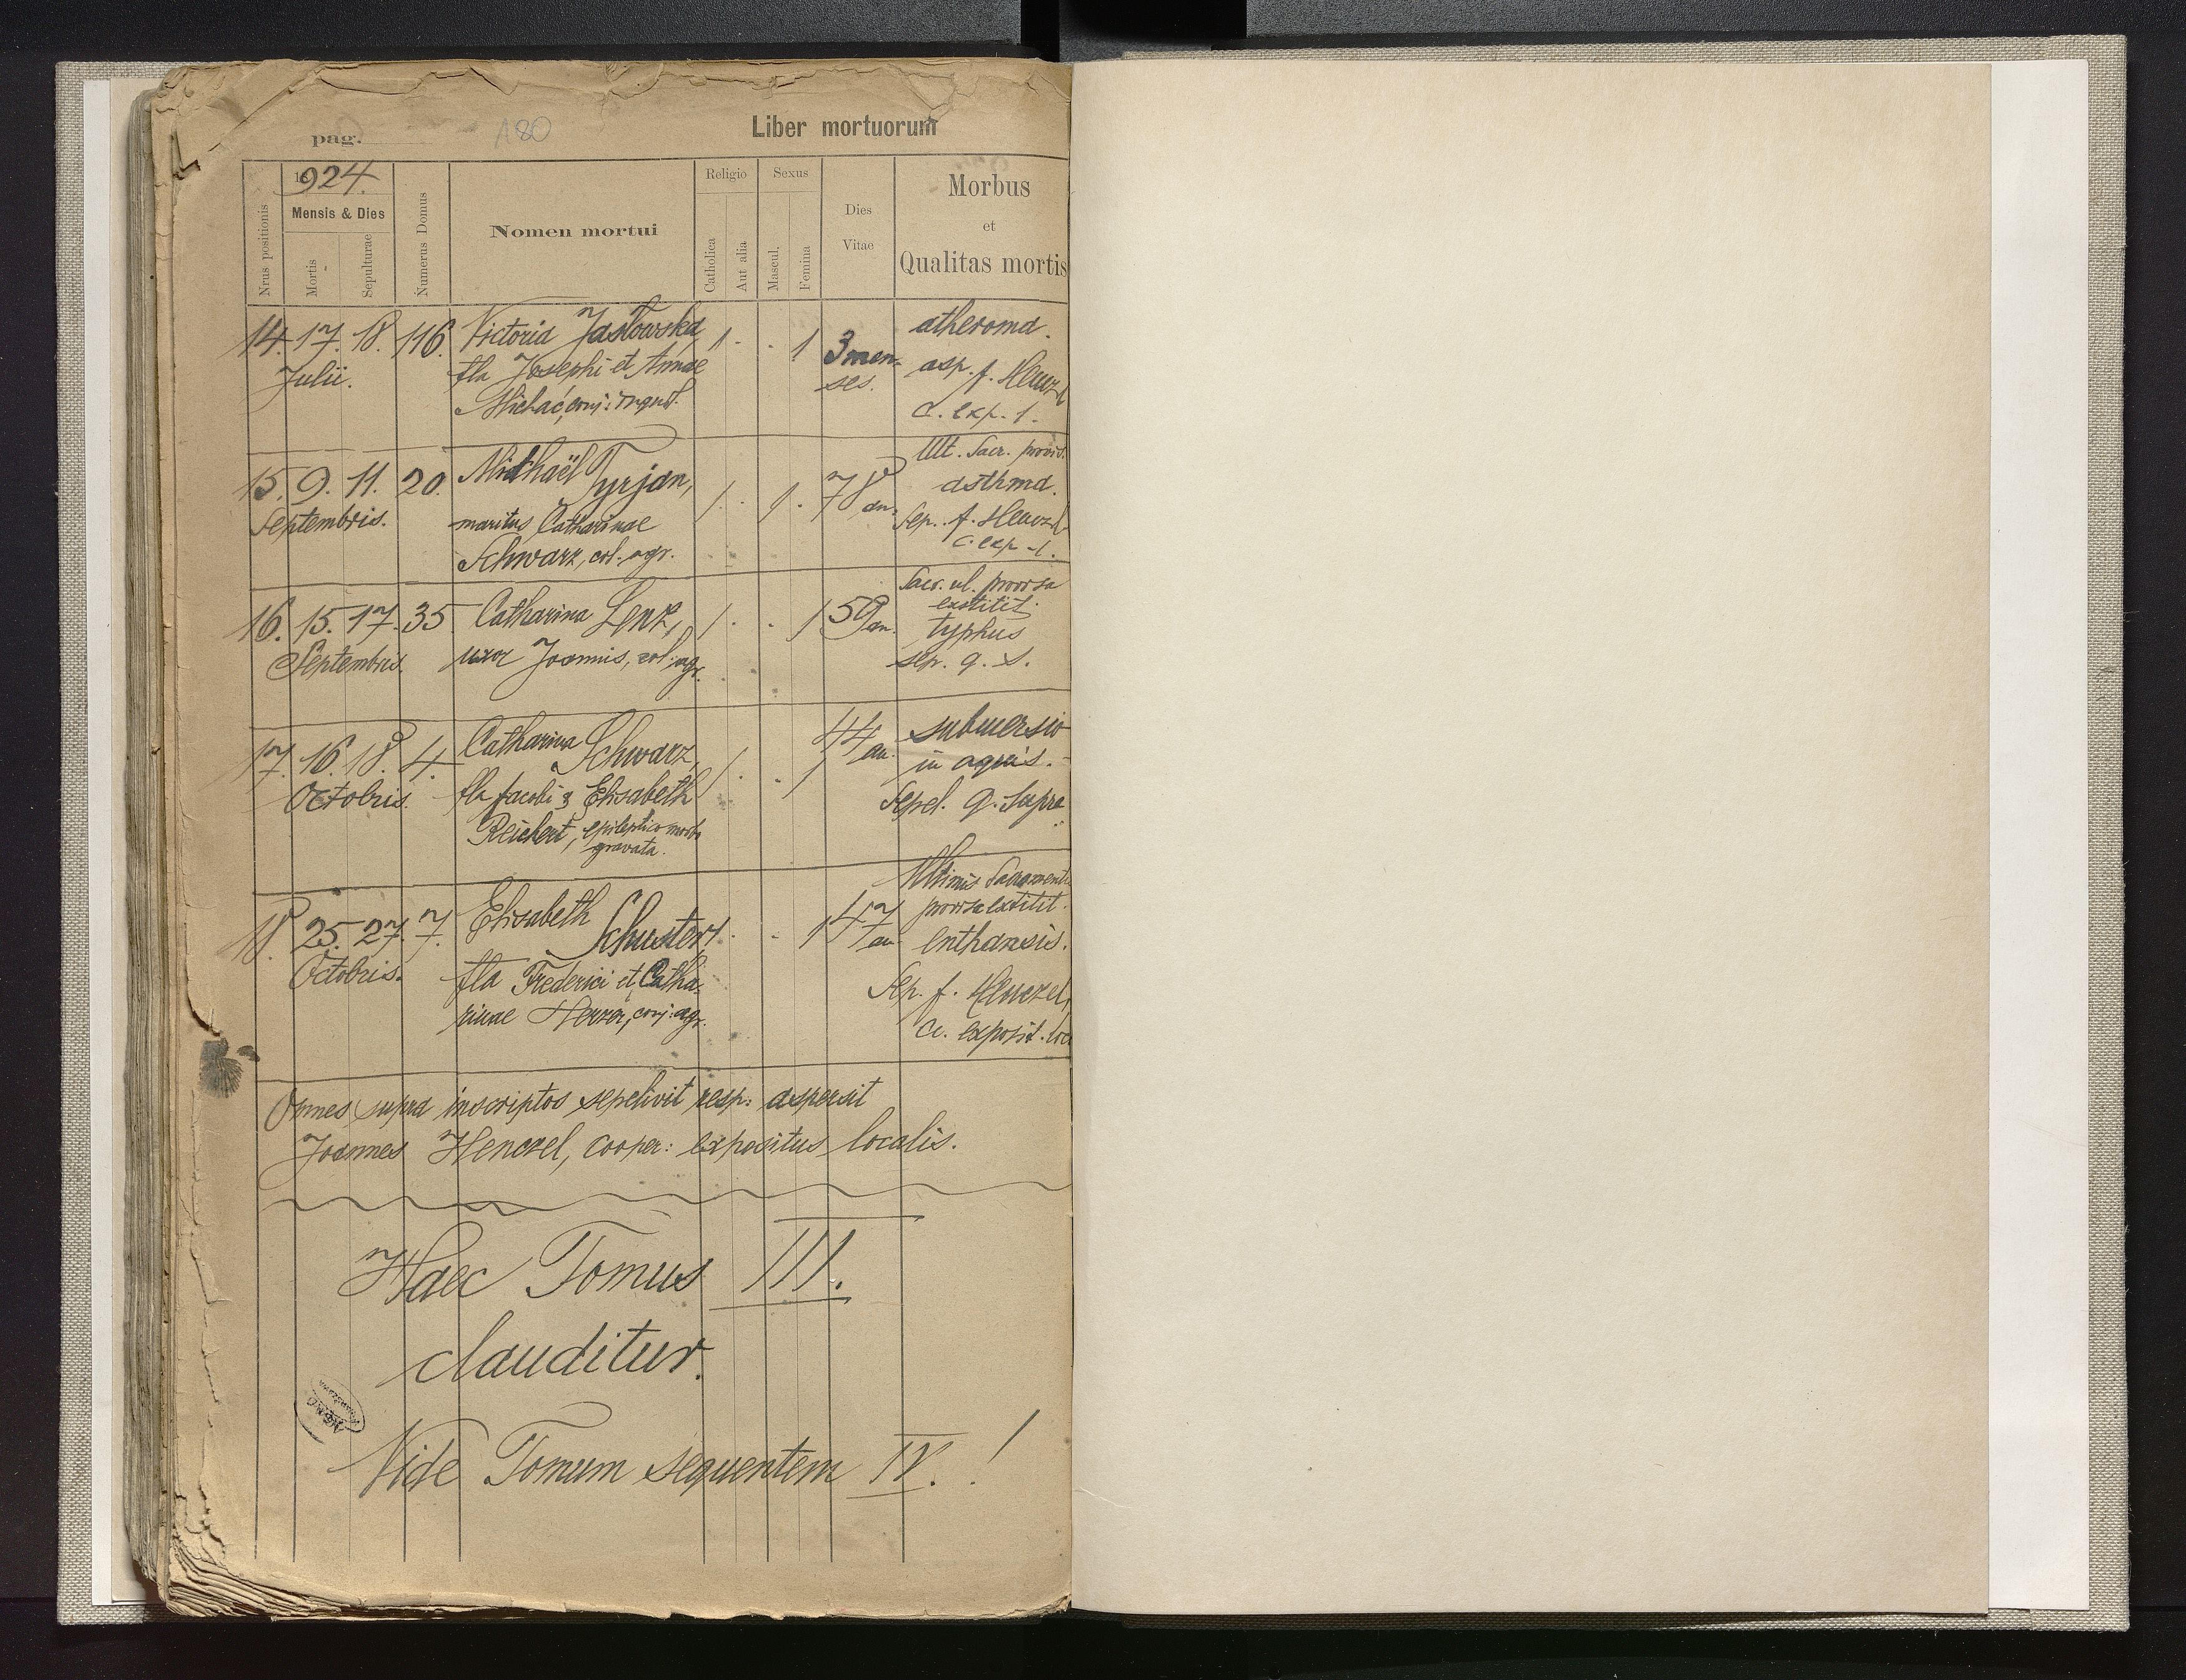 pag. 180 Liber mortuorum
Nrus positionis
1924.
Mensis & Dies
Mortis
Sepulturae
Numerus Domus
Nomen mortui
Religio
Catholica
Aut alia
Sexus
Mascul.
Femina
Dies
Vitae
Morbus
et
Qualitas mortis
14. 17. 18. 116. Victoria Jastowska, 1 . . 1 3 men- atheroma.
Julii. fla Josephi et Annae ses. asp. f. Henczel
Michać, conj: inquil. c. exp. 1.
Ult. Sacr. provis.
15. 9. 11. 20. Michaël Tyrjan, 1 . 1 . 78 an. asthma.
Septembris. maritus Catharinae Sep. f. Henczel
Schwarz, col. agr. c. exp. 1.
Sacr. ul. provisa
extitit.
16. 15. 17. 35 Catharina Lenz, 1 . . 1 59 an. typhus
Septembris. uxor Joannis, col: agr. sep. q. s.
17. 16. 18. 4. Catharina Schwarz, 1 . . 1 44 an. submersio
in aquis.
Octobris. fla Jacobi & Elisabeth Sepel. q. supra
Reichert, epileptico morbo
gravata.
Ultimis Sacramenti
provisa extitit.
18. 25. 27. 7. Elisabeth Schuster, 1 . . 1 47 an. enthanasis.
Octobris. fla Frederici et Catha- Sep. f. Henczel,
rinae Herzer, conj: agr. c. exposit. loc.
Omnes supra inscriptos sepelivit resp: aspersit
Joannes Henczel, cooper: expositus localis.
Haec Tomus III.
clauditur.
Vide Tomum sequentem IV. !